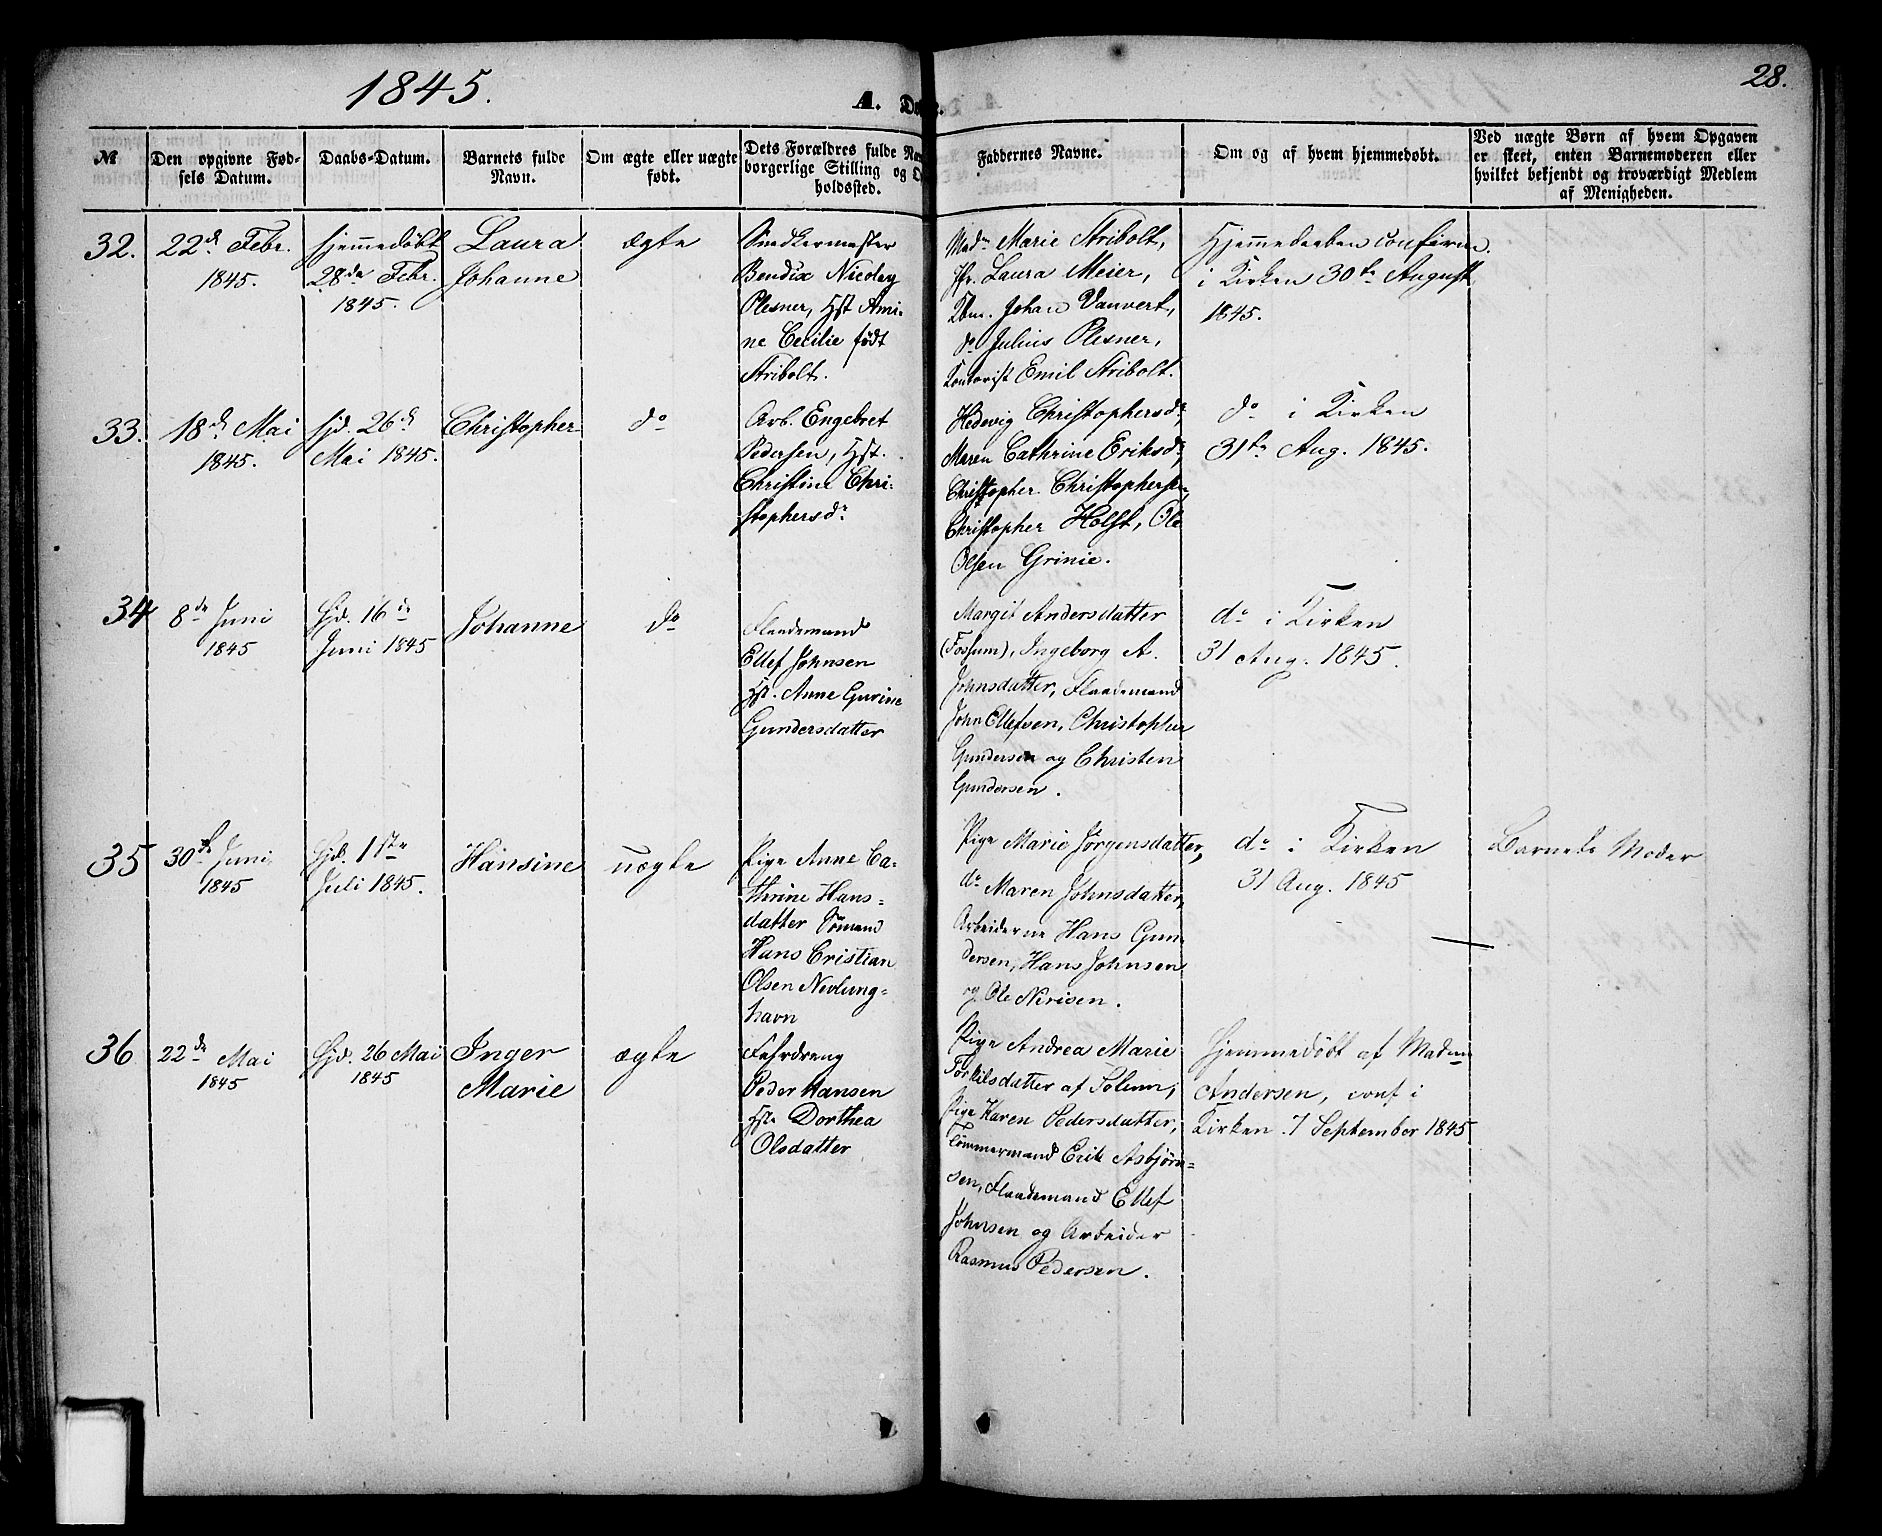 1845.
28.
A. Døbte.
№
Den opgivne Fød-
sels Datum.
Daabs-Datum.
Barnets fulde
Navn.
Om ægte eller uægte
født.
Dets Forældres fulde
borgerlige Stilling og
holdssted.
Faddernes Navne.
Om og af hvem hjemmedøbt.
Ved uægte Børn af hvem Opgaven
er skeet, enten Barnemoderen eller
hvilket bekjendt og troværdigt Medlem
af Menigheden.
32.
22d Febr.
1845.
Hjemmedöbt
28de Febr.
1845.
Laura
Johanne
ægte
Snedkermester
Bendix Nicolay
Plesner, Hst Ami-
ne Cecilie født
Stribolt.
Madm Marie Stribolt,
Jfr. Laura Meier,
Kbm. Johan Vauvert,
do Julius Plesner,
Kontorist Emil Stribolt.
Hjemmedaaben confirm.
i Kirken 30te August
1845.
33.
18d Mai
1845.
Hjd. 26d
Mai 1845.
Christopher
do
Arb. Engebret
Pedersen, Hst.
Christine Chri-
stophersdr
Hedevig Christophersdr,
Maren Cathrine Eriksdr,
Christopher Christophersen,
Christopher Holst, Ole
Olsen Grinie.
do i Kirken
31te Aug. 1845.
34
8de Juni
1845
Hjd. 16de
Juni 1845
Johanne
do
Flaademand
Ellef Johnsen
Hst. Anne Gurine
Gundersdatter
Margit Andersdatter
(Fossum), Ingeborg A.
Johnsdatter, Flaademand
John Ellefsen, Christopher
Gundersen og Christen
Gundersen.
do i Kirken
31 Aug. 1845.
35
30de Juni
1845
Hjd. 1ste
Juli 1845.
Hansine
uægte
Pige Anne Ca-
thrine Hans-
datter Sömand
Hans Cristian
Olsen Nevlung-
havn
Pige Marie Jörgensdatter,
do Maren Johnsdatter,
Arbeiderne Hans Gun-
dersen, Hans Johnsen
og Ole Nirisen.
do i Kirken
31 Aug. 1845
Barnets Moder
36
22de Mai
1845
Hjd. 26 Mai
1845
Inger
Marie
ægte
Peder Hansen
Hst Dorthea
Olsdatter
Pige Andrea Marie
Torkilsdatter af Solum,
Pige Karen Pedersdatter,
Tömmermand Erik Asbjörn-
sen, Flaademand Ellef
Johnsen og Arbeider
Rasmus Pedersen.
Hjemmedöbt af Madam
Andersen, conf i
Kirken 7 September 1845